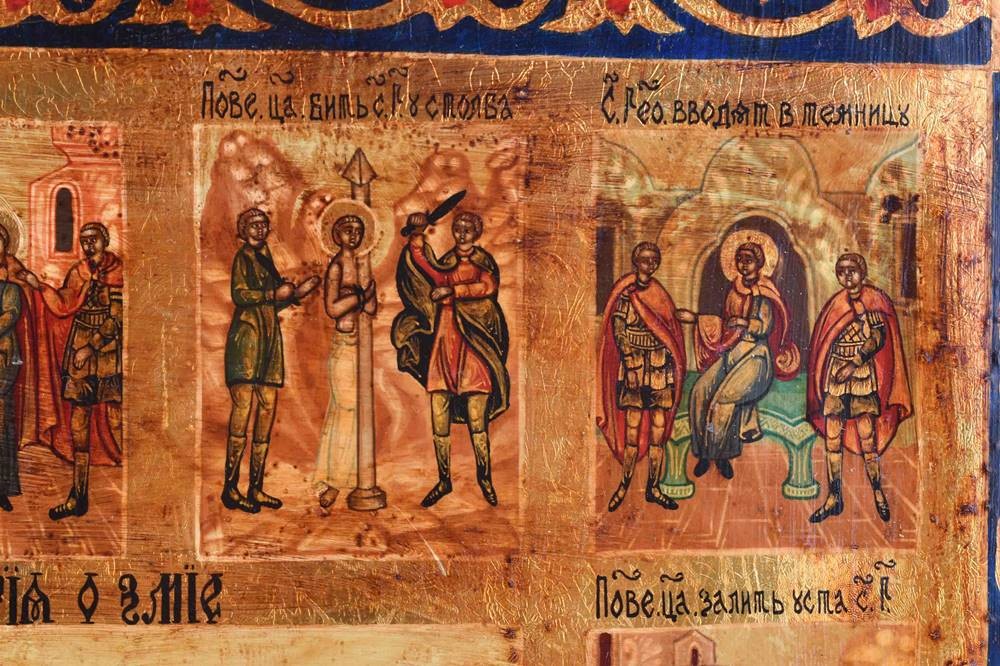 Пове. ца. бить с҃. Г҃. у столба
С҃. Гео. вводѧт в темницу
ріѧ о змїе
Пове. ца. залить уста с҃. Г҃.